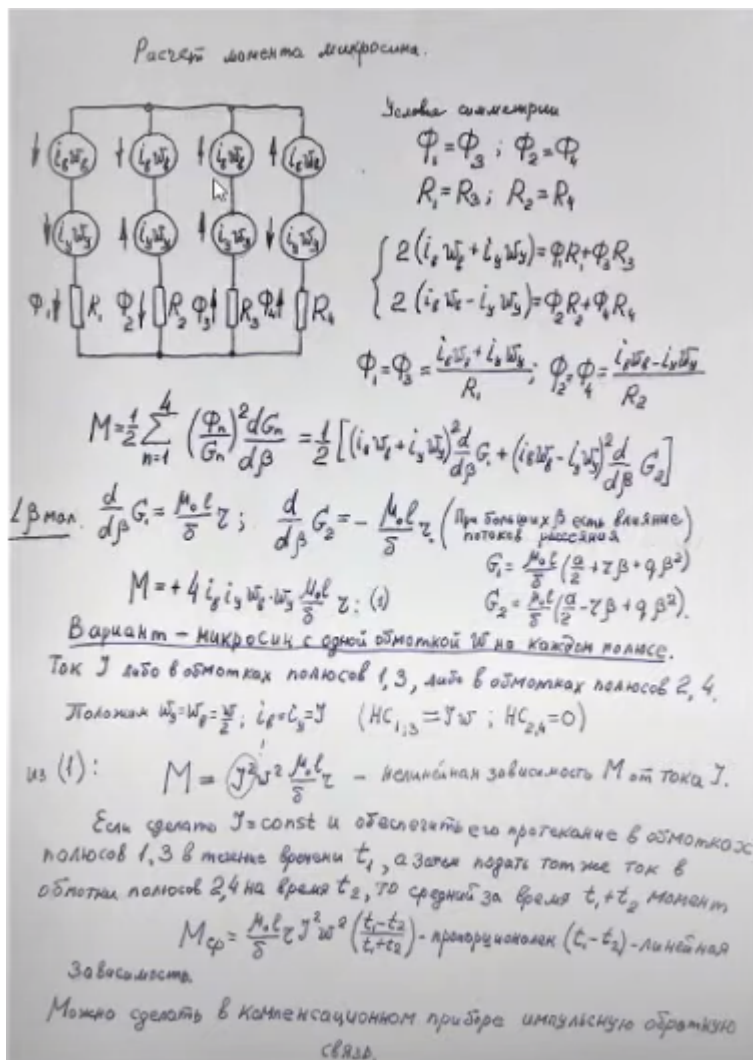 Расчет момента микросина.
Условия симметрии
Φ₁=Φ₃ ; Φ₂=Φ₄
R₁=R₃ ; R₂=R₄
iв wв iв wв iв wв iв wв
iу wу iу wу iу wу iу wу
Φ₁ R₁ Φ₂ R₂ Φ₃ R₃ Φ₄ R₄
2(iв wв + iу wу)=Φ₁R₁+Φ₃R₃
2(iв wв - iу wу)=Φ₂R₂+Φ₄R₄
Φ₁=Φ₃ = (iв wв + iу wу)/R₁ ; Φ₂=Φ₄ = (iв wв - iу wу)/R₂
M = 1/2 ∑ₙ₌₁⁴ (Φₙ/Gₙ)² dGₙ/dβ = 1/2 [(iв wв + iу wу)² d/dβ G₁ + (iв wв - iу wу)² d/dβ G₂]
∠β мал. d/dβ G₁ = μ₀l/δ r ; d/dβ G₂ = - μ₀l/δ r. (При больших β есть влияние потоков рассеяния)
G₁ = μ₀l/δ (a/2 + rβ + qβ²)
M = + 4 iв iу wв · wу μ₀l/δ r : (1)
G₂ = μ₀l/δ (a/2 - rβ + qβ²).
Вариант – микросин с одной обмоткой w на каждом полюсе.
Ток J либо в обмотках полюсов 1,3, либо в обмотках полюсов 2, 4.
Положим wу = wв = w/2 ; iв = iу = J (НС₁,₃ = Jw ; НС₂,₄ = 0)
из (1) : M = J² w² μ₀l/δ r – нелинейная зависимость M от тока J.
Если сделать J = const и обеспечить его протекание в обмотках
полюсов 1,3 в течние времени t₁, а затем подать тот же ток в
обмотки полюсов 2,4 на время t₂, то средний за время t₁+t₂ момент
Mср = μ₀l/δ r J² w² ((t₁-t₂)/(t₁+t₂)) - пропорционален (t₁-t₂) - линейная
зависимость.
Можно сделать в компенсационном приборе импульсную обратную
связь.